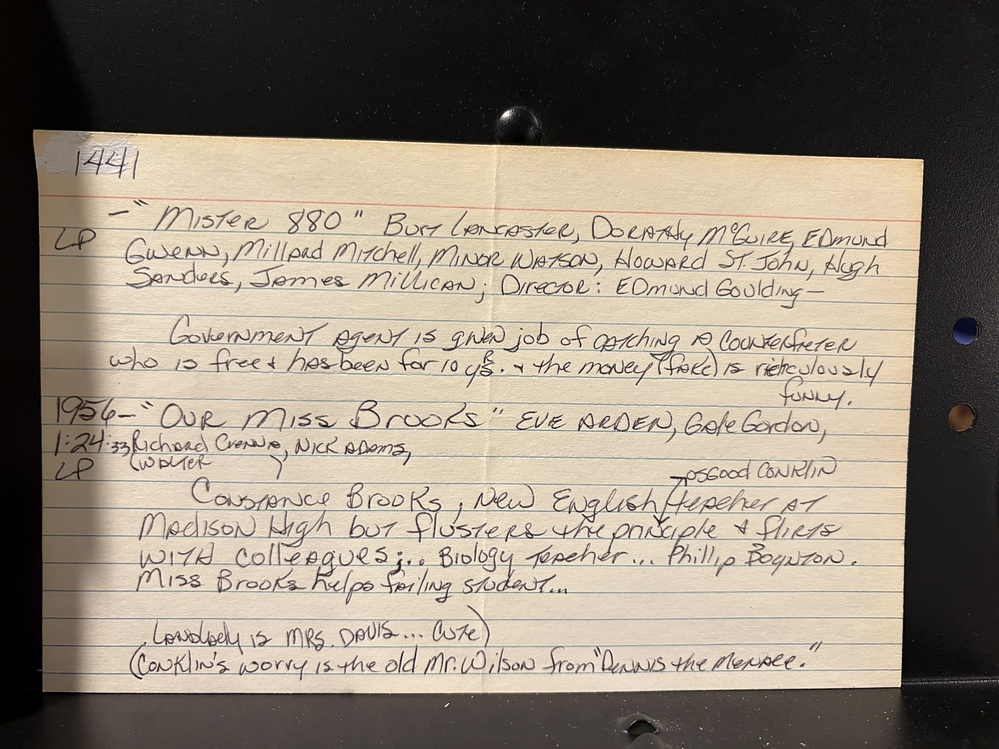 1441
- "Mister 880" Burt Lancaster, Dorathy McGuire, Edmund
LP
Gwenn, Millard Mitchell, Minor Watson, Howard St. John, Hugh
Sanders, James Millican; Director: Edmund Goulding -
Government agent is given job of catching a counterfieter
who is free & has been for 10 yrs. & the money (fake) is rediculously
funny.
1956 - "Our Miss Brooks" Eve Arden, Gale Gordon,
1:24:33 Richard Crenna, Nick Adams,
LP (Walter
Osgood Conklin
Constance Brooks, new English teacher at
Madison High but flusters the principle & flirts
with colleagues;... Biology teacher... Phillip Boynton.
Miss Brooks helps failing student...
Landlady is Mrs. Davis... cute)
(Conklin's worry is the old Mr. Wilson from "Dennis the Menace."